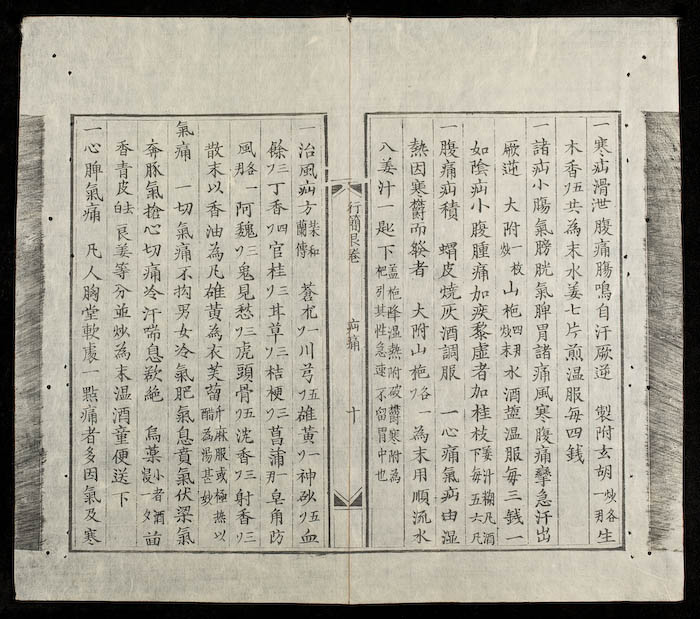 一寒疝滑泄腹痛腸鳴自汗厥逆 製附玄胡炒各一兩生
木香五ソ共為末水姜七片煎温服每四錢
一諸疝小腸氣膀胱氣脾胃諸痛風寒腹痛孿急汗出
厥逆 大附一枚炒山梔四兩炒末水酒盬温服每三錢一
如陰疝小腹腫痛加疾黎虛者加桂枝下姜汁糊凡酒每五六凡
一腹痛疝積 蝟皮燒灰酒調服 一心痛氣疝由湿
熱因寒鬱而發者 大附山梔各一ソ為末用順流水
八姜汁一匙下盖梔降温熱附破鬱寒附為梔引其性急速不留胃中也
行簡艮卷 疝痛 十
一治風疝方蘭傳 蒼朮一ソ川芎五ソ雄黃一ソ神砂五ソ血
餘三ソ丁香四ソ官桂三ソ甘草三ソ桔梗三ソ菖蒲一兩皂角防
風各一兩阿魏三ソ鬼見愁三ソ虎頭骨五ソ沈香三ソ射香三ソ
散末以香油為凡雄黃為衣芙蔔升麻服或極热以醋為湯甚妙
氣痛 一切氣痛不拘男女冷氣肥氣息賁氣伏梁氣
奔豚氣搶心切痛冷汗喘息欲絶 烏藥小者酒浸一夕茴
香青皮去白良姜等分並炒為末温酒童便送下
一心脾氣痛 凡人胸堂軟處一點痛者多因氣及寒